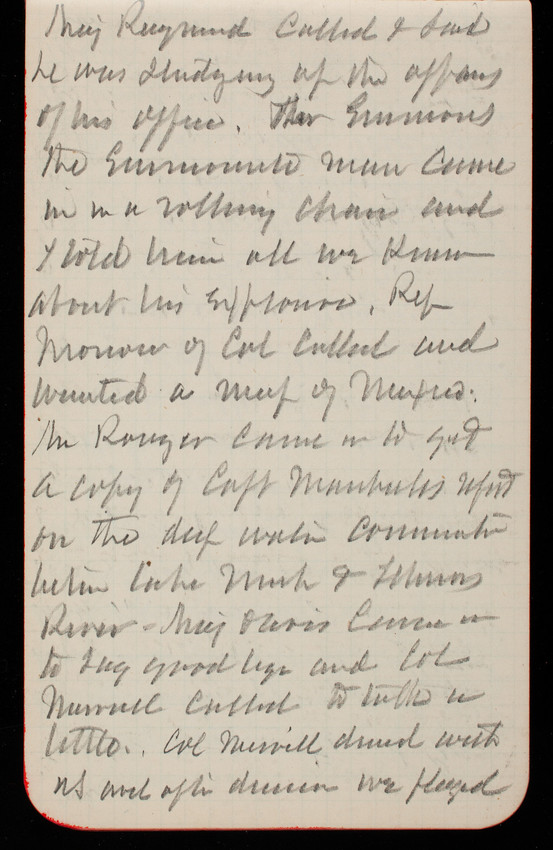 Maj Raymond Called & said
he was studying up the affairs
of his office. Then Emmons
the Emmonsite man came
in in a rolling chair and
I told him all we knew
about his explosive. Rep
Morrow of Cal Called and
wanted a map of Mexico.
Mr Rouzer came in to get
a copy of Capt Marshalls report
on the deep water
Lake Mich & Illinois
River - Maj Davis Came in
to say good bye and Col
Merrill Called to talk a
little. Col Merrill dined with
us and after dinner we played